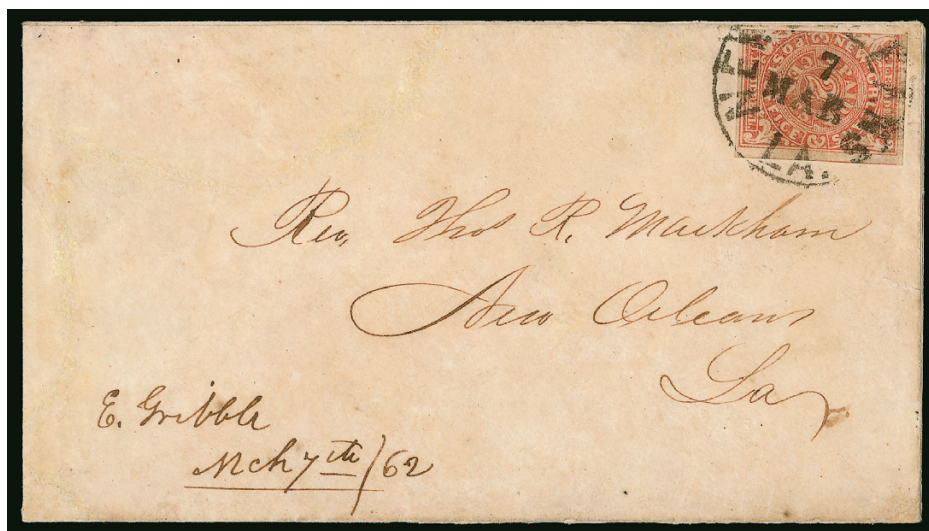 7
MAR
LA.
Rev. Thos R. Markham
New Orleans
La
E. Gribble
Mch 7th/62